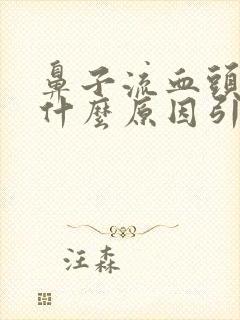 鼻子流血頭
什麼原因引
汪森